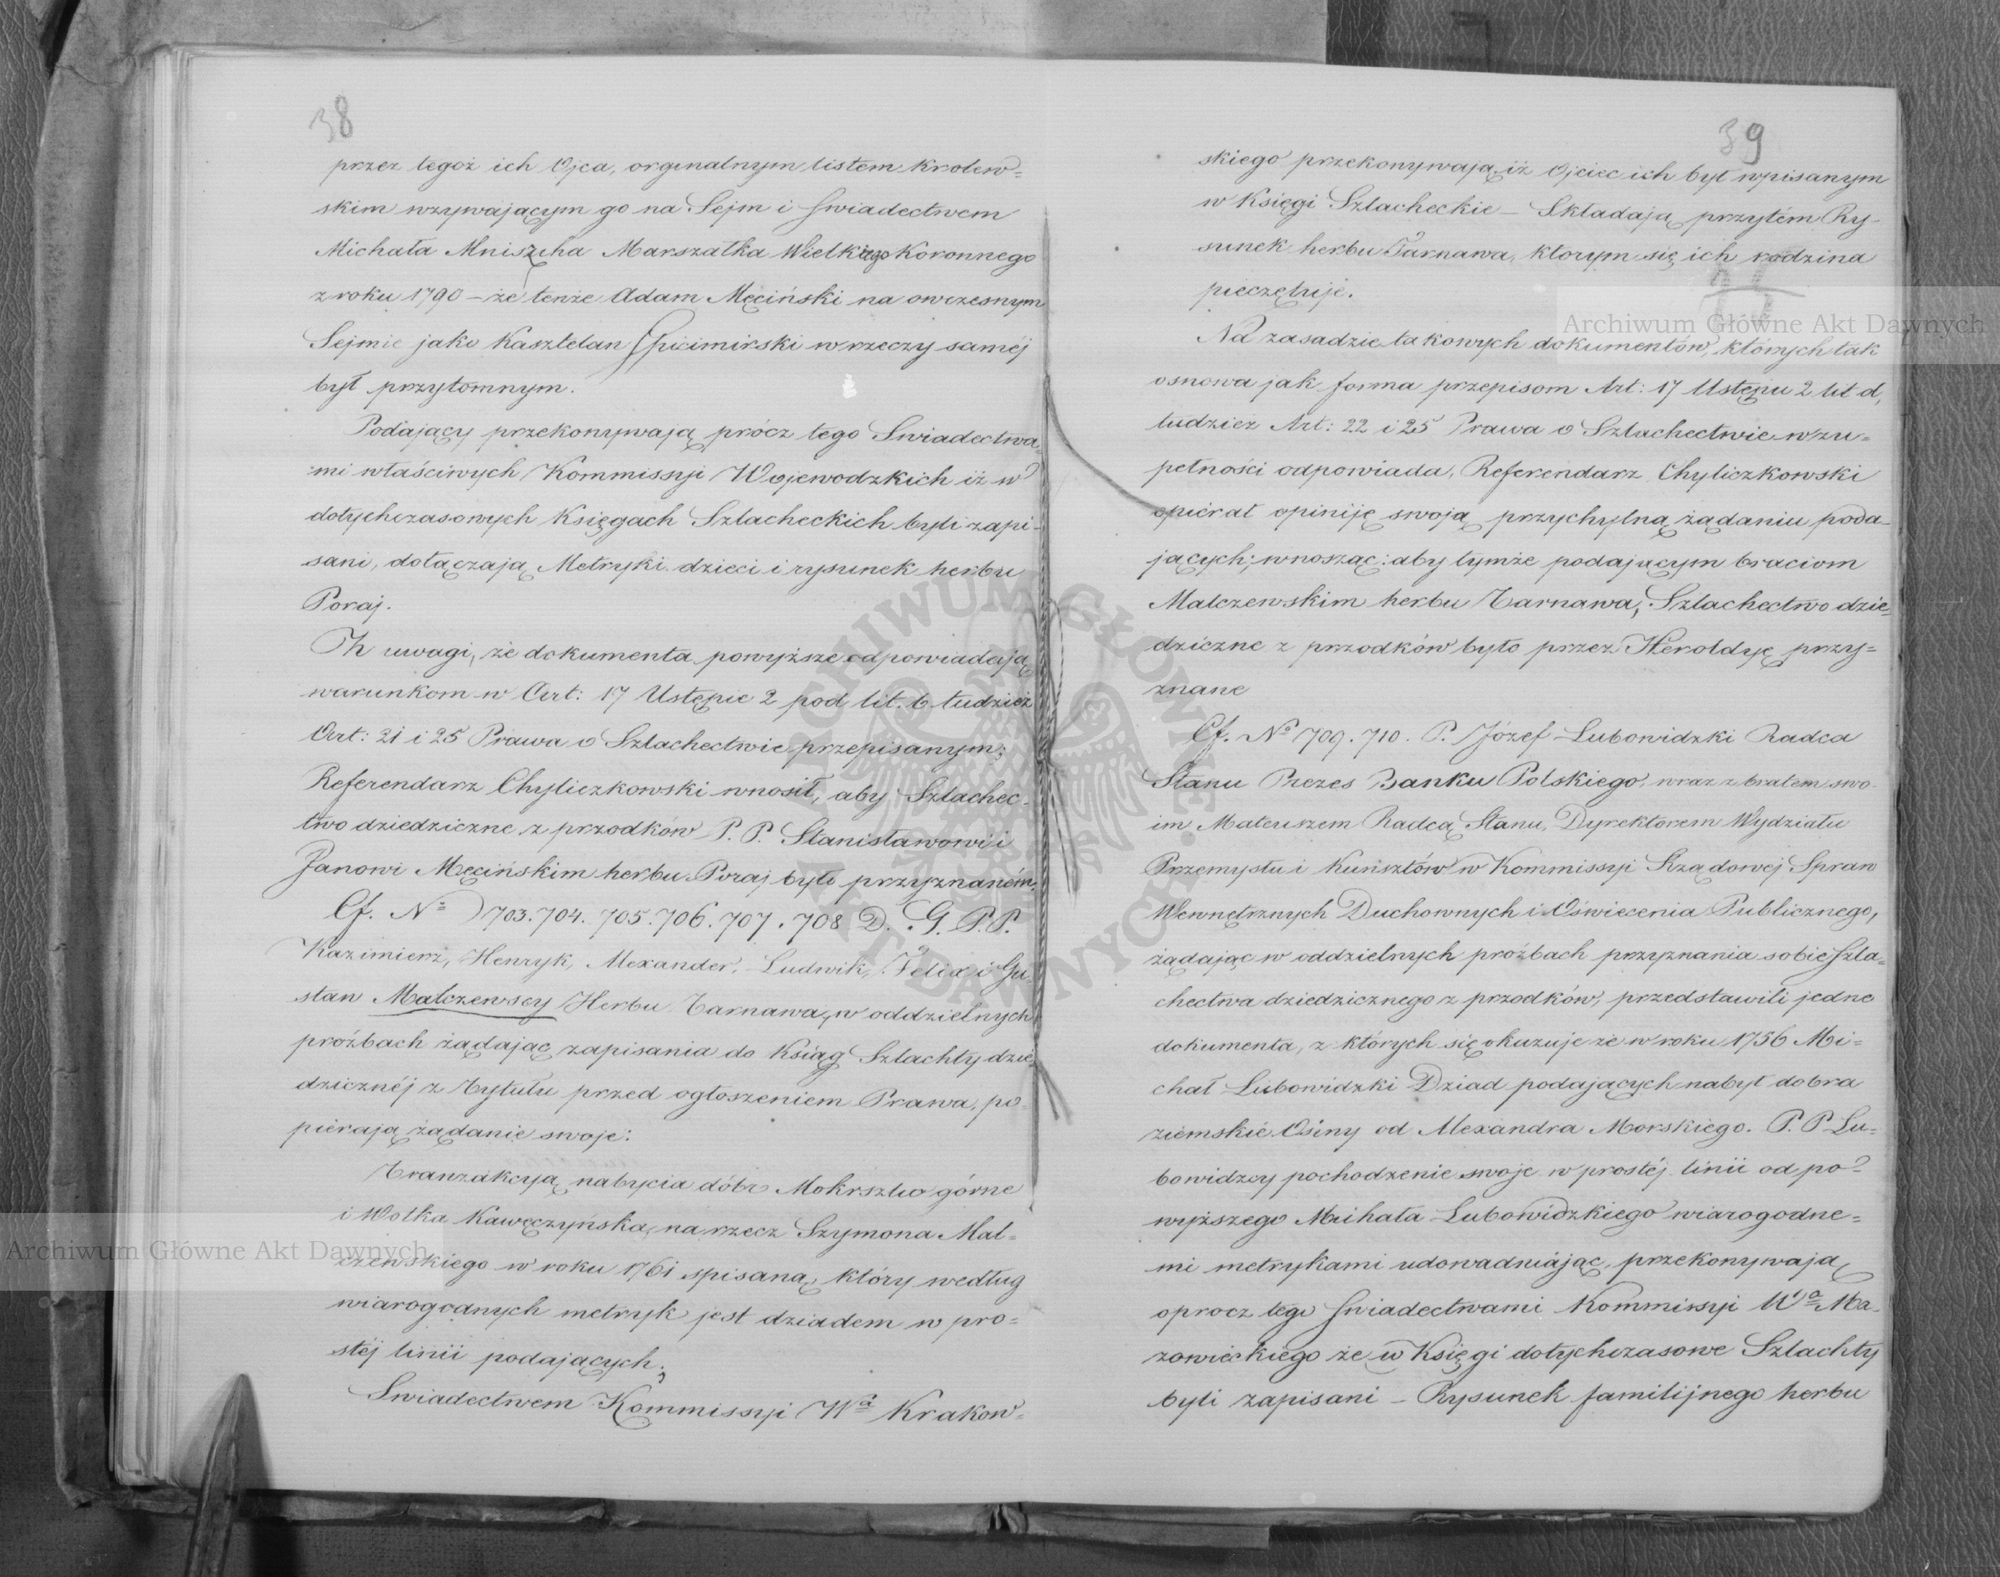 38
przez tegoż ich Ojca, orginalnym listem Krolew=
skim wzywającym go na Sejm i świadectwem
Michała Mniszcha Marszałka Wielkiego Koronnego
z roku 1790 – że tenże Adam Męciński na owczesnym
Sejmie jako Kasztelan Spicimirski w rzeczy saméj
był przytomnym.
Podający przekonywają prócz tego Swiadectwa=
mi właściwych Kommissyi Wojewodzkich iż w
dotychczasowych Księgach Szlacheckich byli zapi-
sani, dołączają Metryki dzieci i rysunek herbu
Poraj.
Z uwagi, że dokumenta powyższe odpowiadają
warunkom w Art: 17 Ustępie 2 pod lit. b tudzież
Art: 21 i 25 Prawa o Szlachectwie przepisanym;
Referendarz Chyliczkowski wnosił, aby Szlachec-
two dziedziczne z przodków P. P. Stanisławowi i
Janowi Męcińskim herbu Poraj było przyznaném.
Cf. No 703. 704. 705. 706. 707. 708 D. G. P.P.
Kazimierz, Henryk, Alexander, Ludwik, Felix i Gu
staw Malczewscy Herbu Tarnawa, w oddzielnych
proźbach żądając zapisania do Ksiąg Szlachty dzie
dzicznéj z tytułu przed ogłoszeniem Prawa, po-
pierają żądanie swoje:
Tranzakcyą nabycia dóbr Mokrszko górne
i Wolka Kawęczyńska, na rzecz Szymona Mal=
czewskiego w roku 1761 spisaną, który według
wiarogodnych metryk jest dziadem w pro=
stéj linii podających;
Swiadectwem Kommissyi Wa Krakow=
39
skiego przekonywają iż Ojciec ich był wpisanym
w Księgi Szlacheckie – Składają przytém Ry-
sunek herbu Tarnawa, ktorym się ich rodzina
pieczętuje.
Na zasadzie takowych dokumentów, których tak
osnowa jak forma przepisom Art: 17 Ustępu 2 lit d,
tudzież Art: 22 i 25 Prawa o Szlachectwie w zu=
pełności odpowiada, Referendarz Chyliczkowski
opierał opiniję swoją przychylną żądaniu poda-
jących; wnosząc: aby tymże podającym braciom
Malczewskim herbu Tarnawa, Szlachectwo dzie
dziczne z przodków było przez Heroldyę przy=
znane
Cf. No 709. 710. P. Józef Lubowidzki Radca
Stanu Prezes Banku Polskiego, wraz z bratem swo
im Mateuszem Radcą Stanu, Dyrektorem Wydziału
Przemysłu i Kunsztów w Kommissyi Rządowéj Spraw
Wewnętrznych Duchownych i Oświecenia Publicznego,
żądając w oddzielnych proźbach przyznania sobie Szla=
chectwa dziedzicznego z przodków, przedstawili jedne
dokumenta, z których się okazuje że w roku 1756 Mi=
chał Lubowidzki Dziad podających nabył dobra
ziemskie Osiny od Alexandra Morskiego. P. P Lu=
bowidzcy pochodzenie swoje w prostéj linii od po=
wyższego Michała Lubowidzkiego wiarogodne=
mi metrykami udowadniając, przekonywają
oprocz tego świadectwami Kommissyi Wa Ma-
zowieckiego że w Księgi dotychczasowe Szlachty
byli zapisani – Rysunek familijnego herbu
Archiwum Główne Akt Dawnych
Archiwum Główne Akt Dawnych
ARCHIWUM GŁÓWNE AKT DAWNYCH